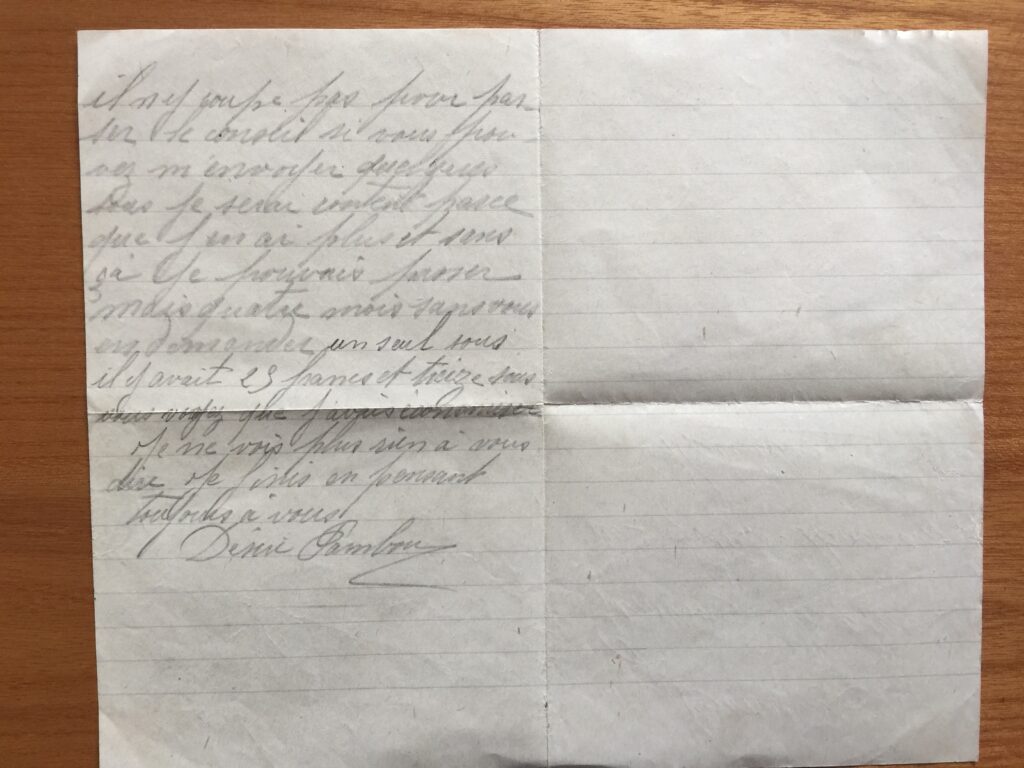 il n'y coupe pas pour pas
ser le conseil si vous pou-
vez m'envoyer quelques
sous je serai content parce
que j'en ai plus et sans
ça je pouvais passer
mais quatre mois sans vous
en demander un seul sous
il y avait 23 francs et treize sous
vous voyez que j'avais économiser
Je ne vois plus rien à vous
dire Je finis en pensant
toujours à vous
Désiré